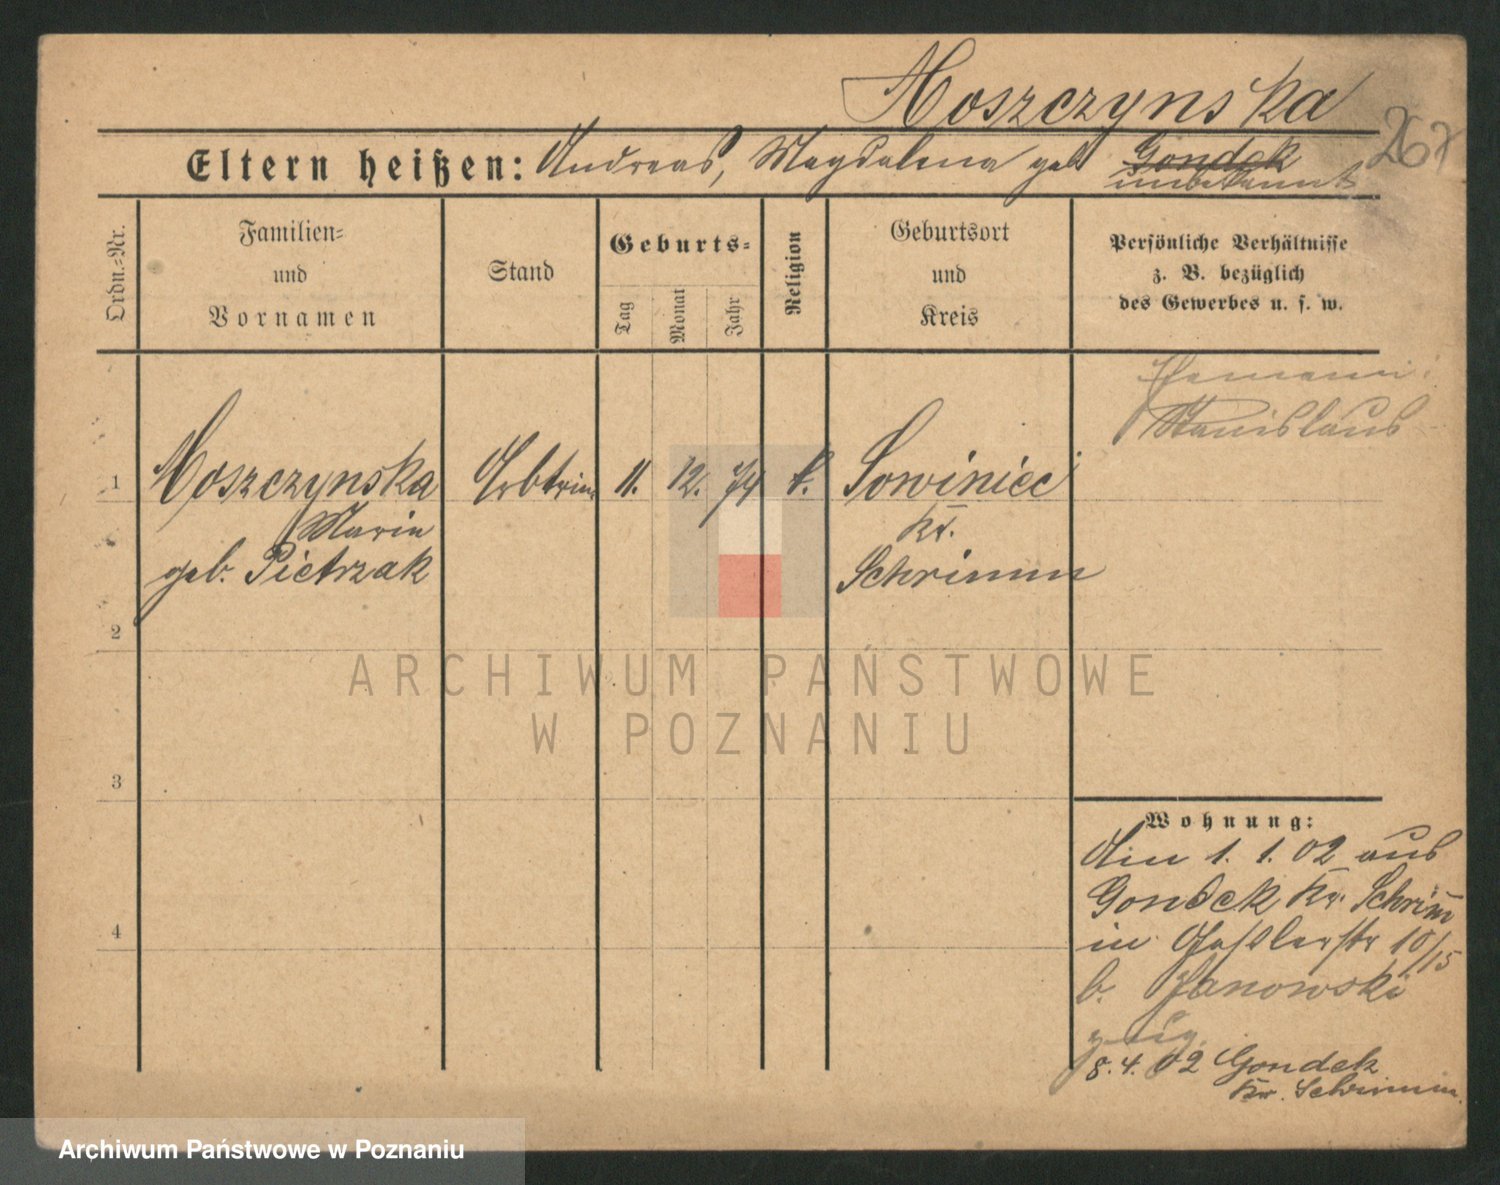 Moszczynska
267
Eltern heißen: Andreas, Magdalena geb. Gondek
unbekannt
Ordn.-Nr.
Familien-
und
Vornamen
Stand
Geburts-
Tag
Monat
Jahr
Religion
Geburtsort
und
Kreis
Persönliche Verhältnisse
z. B. bezüglich
des Gewerbes u. s. w.
Stanislaus
1 Moszczynska 11. 12. 74 k. Sowiniec
Maria Kr.
geb. Pietrzak Schrimm
2
3
4
Wohnung:
1. 1. 02 aus
Gondek Kr. Schrimm
in 10/15
b. Janowski
8.4.02 Gondek
Kr. Schrimm
ARCHIWUM PAŃSTWOWE
W POZNANIU
Archiwum Państwowe w Poznaniu